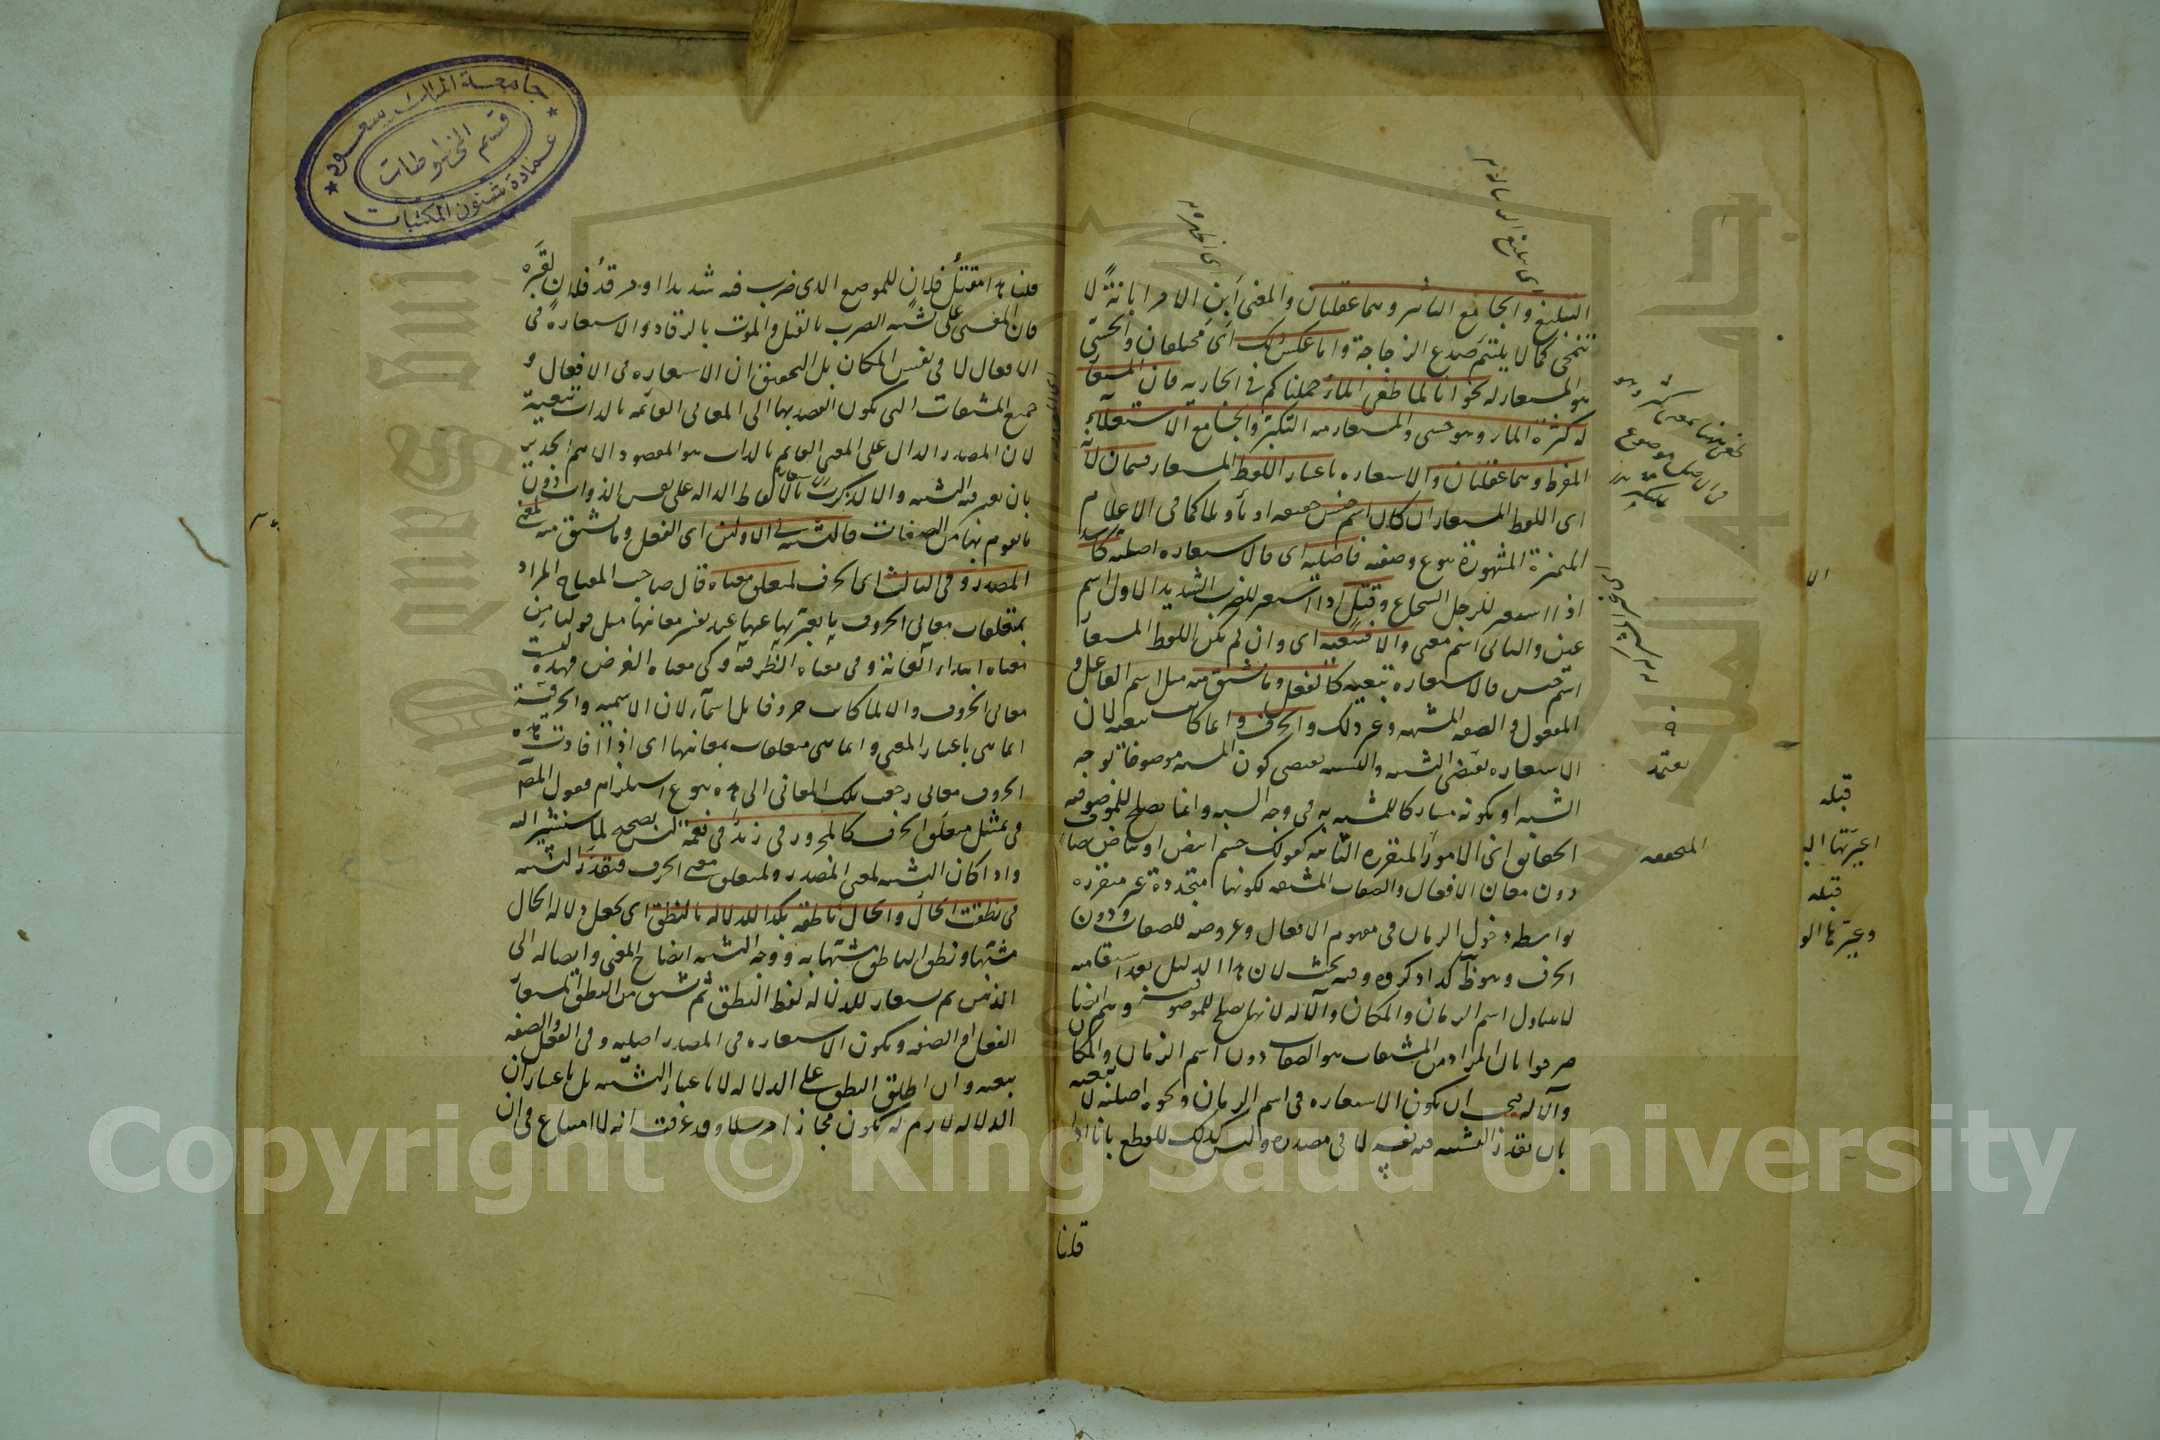 التبليغ والجامع التاثير وهما عقليان والمعنى ابن الامر ابانة لا
تنمحى كما لا يلتئم صدع الزجاجة واما عكس ذلك اى مختلفان والحسى
هو المستعار له نحو انا لما طغى الماء حملناكم فى الجارية فان المستعار
له كثرة الماء وهو حسى والمستعار منه التكبر والجامع الاستعلاء
المفرط وهما عقليان والاستعارة باعتبار اللفظ المستعار قسمان لانه
اى اللفظ المستعار ان كان اسم جنس حقيقة او تأويلا كما فى الاعلام
المشهورة بنوع وصفية فاصلية اى فالاستعارة اصلية كاسد
اذا استعير للرجل الشجاع وقتل اذا استعير للضرب الشديد الاول اسم
عين والثانى اسم معنى والا فتبعية اى وان لم يكن اللفظ المستعار
اسم جنس فالاستعارة تبعية كالفعل وما يشتق منه مثل اسم الفاعل و
المفعول والصفة المشبهة وغير ذلك والحرف وانما كانت تبعية لان
الاستعارة تقتضى التشبيه والتشبيه يقتضى كون المشبه موصوفا بوجه
الشبه او بكونه مشاركا للمشبه به فى وجه الشبه وانما يصلح للموصوفية
الحقايق اى الامور المتقررة الثابتة كقولك جسم ابيض او بياض صاف
دون معانى الافعال والصفات المشتقة لكونها متجددة غير متقررة
بواسطة دخول الزمان فى مفهوم الافعال وعروضه للصفات ودون
الحرف وهو ظ كذا ذكروه وفيه بحث لان هذا الدليل بعد استقامته
لا يتناول اسم الزمان والمكان والآلة لانها يصلح للموصوفية وهم ايضا
صرحوا بان المراد من المشتقات هو الصفات دون اسم الزمان والمكان
والآلة فيجب ان يكون الاستعارة فى اسم الزمان ونحوه اصلية لا تبعية
بان يقدر التشبيه فيه نفسه لا فى مصدره وليس كذلك للقطع بانا اذا
قلنا
اى تبليغ الرسالة
يعتمد
قلنا هذا مقتل فلان للموضع الذى ضرب فيه شديدا او مرقد فلان لقبره
فان المعنى على تشبيه الضرب بالقتل والموت بالرقاد والاستعارة فى
الافعال لا فى نفس المكان بل التحقيق ان الاستعارة فى الافعال و
جميع المشتقات التى يكون القصد بها الى المعانى القائمة بالذات تبعية
لان المصدر الدال على المعنى القائم بالذات هو المقصود الاهم الجدير
بان يعتبر فيه التشبيه والا لذكرت الالفاظ الدالة على نفس الذوات دون
ما يقوم بها من الصفات فالتشبيه فى الاولين اى الفعل وما يشتق منه لمعنى
المصدر وفى الثالث اى الحرف لمتعلق معناه قال صاحب المفتاح المراد
بمتعلقات معانى الحروف ما يعبر بها عنها عند تفسير معانيها مثل قولنا من
معناه ابتداء الغاية وفى معناه الظرفية وكى معناه الغرض فهذه ليست
معانى الحروف والا لما كانت حروفا بل اسماء لان الاسمية والحرفية
انما هى باعتبار المعنى وانما هى متعلقات بمعانيها اى اذا افادت هذه
الحروف معانى رجعت تلك المعانى الى هذه بنوع استلزام فقول المصـ
فى تمثيل متعلق الحرف كالمجرور فى زيد فى نعمة ليس بصحيح لما سنشير اليه
واذا كان التشبيه لمعنى المصدر ولمتعلق معنى الحرف فيقدر التشبيه
فى نطقت الحال والحال ناطقة بكذا للدلالة بالنطق اى يجعل دلالة الحال
مشبها ونطق الناطق مشبها به ووجه التشبيه ايضاح المعنى وايصاله الى
الذهن ثم يستعار للدلالة لفظ النطق ثم يشتق من النطق المستعار
الفعل او الصفة ويكون الاستعارة فى المصدر اصلية وفى الفعل والصفة
تبعية وان اطلق النطق على الدلالة لا باعتبار التشبيه بل باعتبار ان
الدلالة لازم له يكون مجازا مرسلا وقد عرفت انه لا امتناع فى ان
قبله
قبله
جامعة الملك سعود
قسم المخطوطات
عمادة شئون المكتبات
Copyright © King Saud University